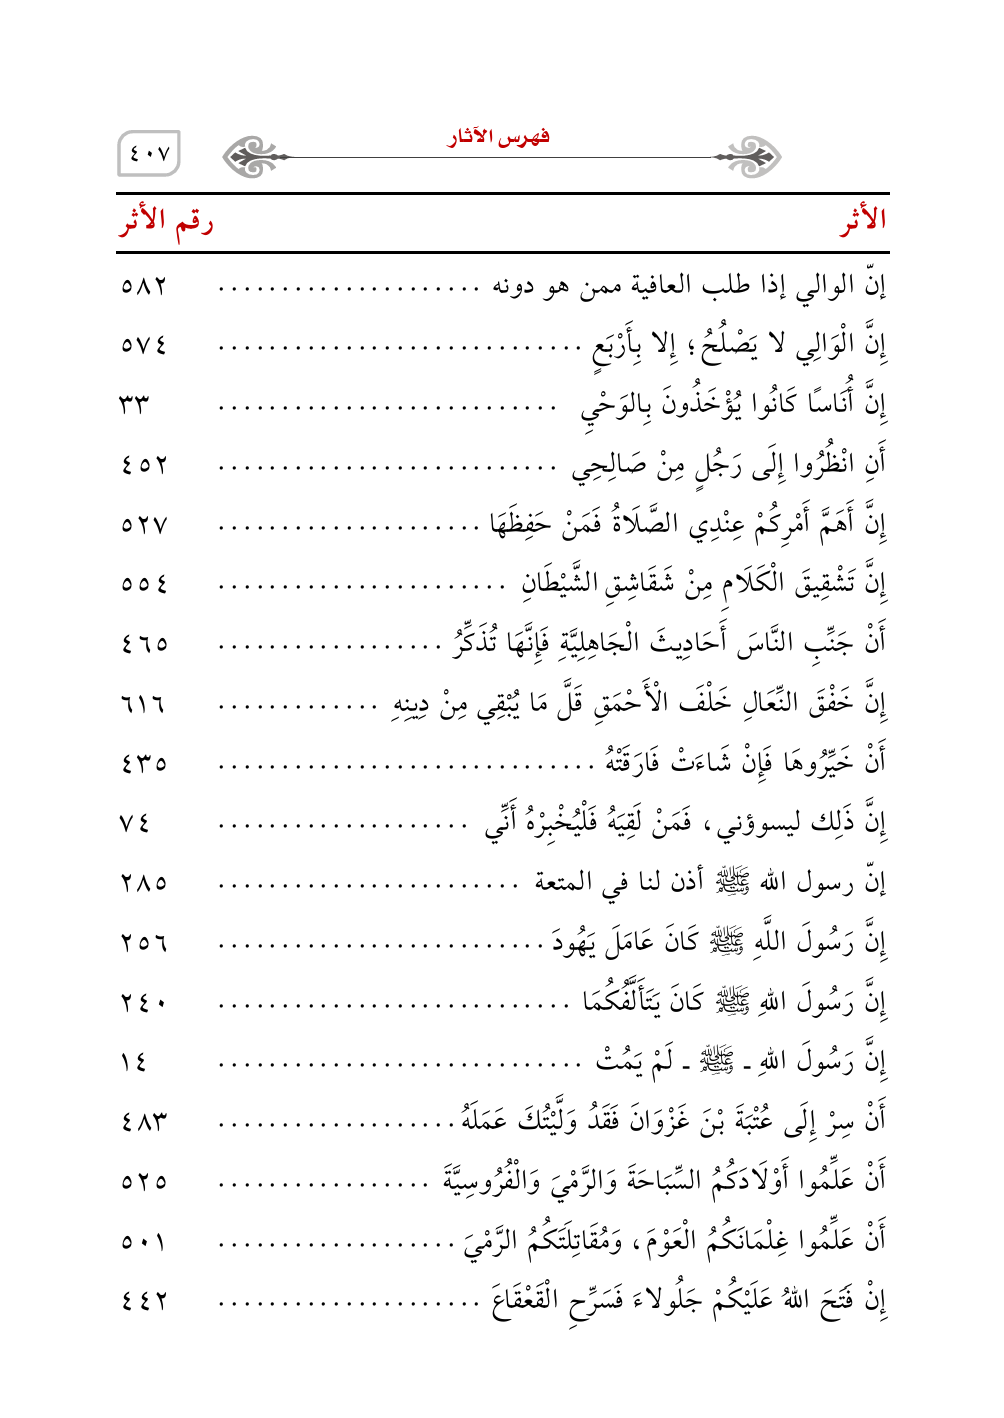 فهرس الآثار
٤٠٧
الأثر رقم الأثر
إنّ الوالي إذا طلب العافية ممن هو دونه ..................... ٥٨٢
إِنَّ الْوَالِي لا يَصْلُحُ؛ إِلا بِأَرْبَعٍ ............................. ٥٧٤
إِنَّ أُنَاسًا كَانُوا يُؤْخَذُونَ بِالوَحْيِ ........................... ٣٣
أَنِ انْظُرُوا إِلَى رَجُلٍ مِنْ صَالِحِي ........................... ٤٥٢
إِنَّ أَهَمَّ أَمْرِكُمْ عِنْدِي الصَّلَاةُ فَمَنْ حَفِظَهَا ..................... ٥٢٧
إِنَّ تَشْقِيقَ الْكَلَامِ مِنْ شَقَاشِقِ الشَّيْطَانِ ....................... ٥٥٤
أَنْ جَنِّبِ النَّاسَ أَحَادِيثَ الْجَاهِلِيَّةِ فَإِنَّهَا تُذَكِّرُ .................. ٤٦٥
إِنَّ خَفْقَ النِّعَالِ خَلْفَ الْأَحْمَقِ قَلَّ مَا يُبْقِي مِنْ دِينِهِ ............. ٦١٦
أَنْ خَيِّرُوهَا فَإِنْ شَاءَتْ فَارَقَتْهُ .............................. ٤٣٥
إِنَّ ذَلِك ليسوؤني، فَمَنْ لَقِيَهُ فَلْيُخْبِرْهُ أَنِّي .................... ٧٤
إنّ رسول الله ﷺ أذن لنا في المتعة ........................ ٢٨٥
إِنَّ رَسُولَ اللَّهِ ﷺ كَانَ عَامَلَ يَهُودَ .......................... ٢٥٦
إِنَّ رَسُولَ اللهِ ﷺ كَانَ يَتَأَلَّفُكُمَا ............................ ٢٤٠
إِنَّ رَسُولَ اللهِ ـ ﷺ ـ لَمْ يَمُتْ ............................. ١٤
أَنْ سِرْ إِلَى عُتْبَةَ بْنَ غَزْوَانَ فَقَدُ وَلَّيْتُكَ عَمَلَهُ ................... ٤٨٣
أَنْ عَلِّمُوا أَوْلَادَكُمُ السِّبَاحَةَ وَالرَّمْيَ وَالْفُرُوسِيَّةَ ................. ٥٢٥
أَنْ عَلِّمُوا غِلْمَانَكُمُ الْعَوْمَ، وَمُقَاتِلَتَكُمُ الرَّمْيَ ................... ٥٠١
إِنْ فَتَحَ اللهُ عَلَيْكُمْ جَلُولاءَ فَسَرِّحِ الْقَعْقَاعَ ..................... ٤٤٢